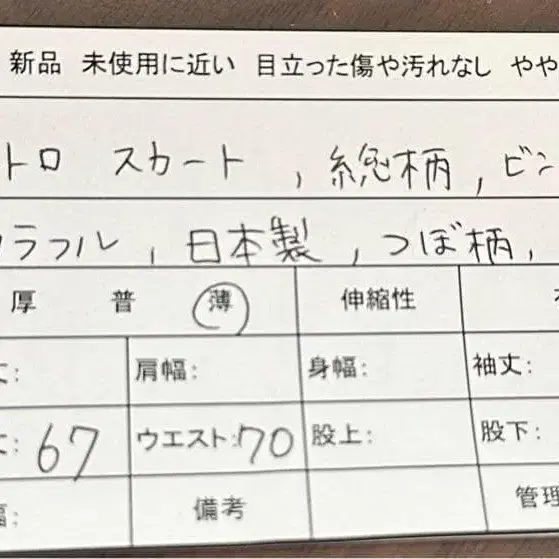 新品 未使用に近い 目立った傷や汚れなし やや
トロ スカート , 総柄 , ビン
ラフル , 日本製 , つぼ柄 ,
厚 普 薄 伸縮性
丈: 肩幅: 身幅: 袖丈:
丈: 67 ウエスト: 70 股上: 股下:
幅: 備考 管理